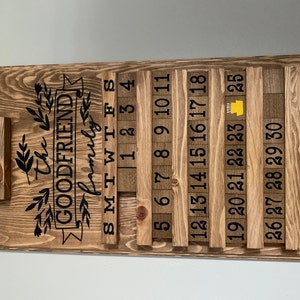 the
GOODFRIEND
family
S M T W T F S
1 2 3 4
5 6 7 8 9 10 11
12 13 14 15 16 17 18
19 20 21 22 23 25
26 27 28 29 30